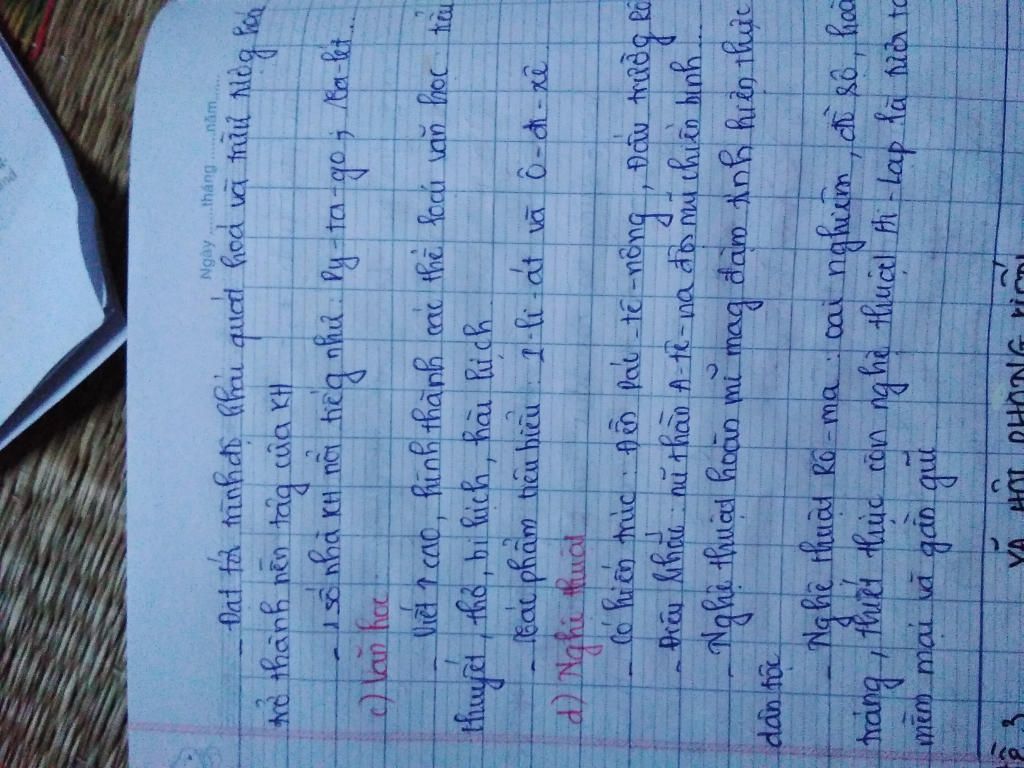 Ngày ......tháng ......năm......
- Đạt tới trình độ khái quát hoá và trừu tượng hoá
trở thành nền tảng của KH
- 1 số nhà KH nổi tiếng như: Py-ta-go; Ta-lét...
c) Văn học
- Viết ↑ cao, hình thành các thể loại văn học: tiểu
thuyết, thơ, bi kịch, hài kịch
- Các phẩm tiêu biểu: I-li-át và Ô-đi-xê
d) Nghệ thuật
- Có kiến trúc: Đền Pác-tê-nông, Đấu trường Rô
- Điêu khắc: nữ thần A-tê-na đội mũ chiến binh...
- Nghệ thuật hoàn mĩ mag đậm tính hiện thực
dân tộc
- Nghệ thuật Rô-ma: oai nghiêm, đồ sộ, hoà
tráng, thiết thực còn nghệ thuật Hi-Lạp là
mềm mại và gần gũi
3 XÃ HỘI PHONG KIẾN